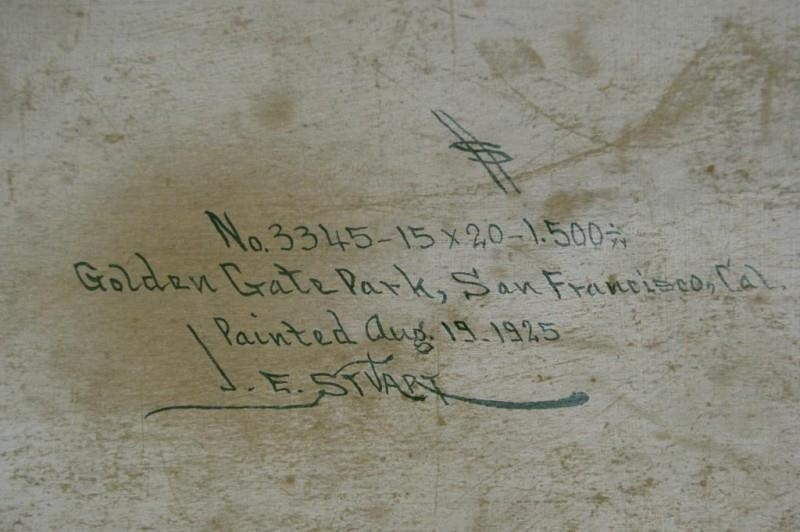 $
No. 3345-15 x 20-1.500
Golden Gate Park, San Francisco, Cal.
Painted Aug. 19-1925
J. E. STUART